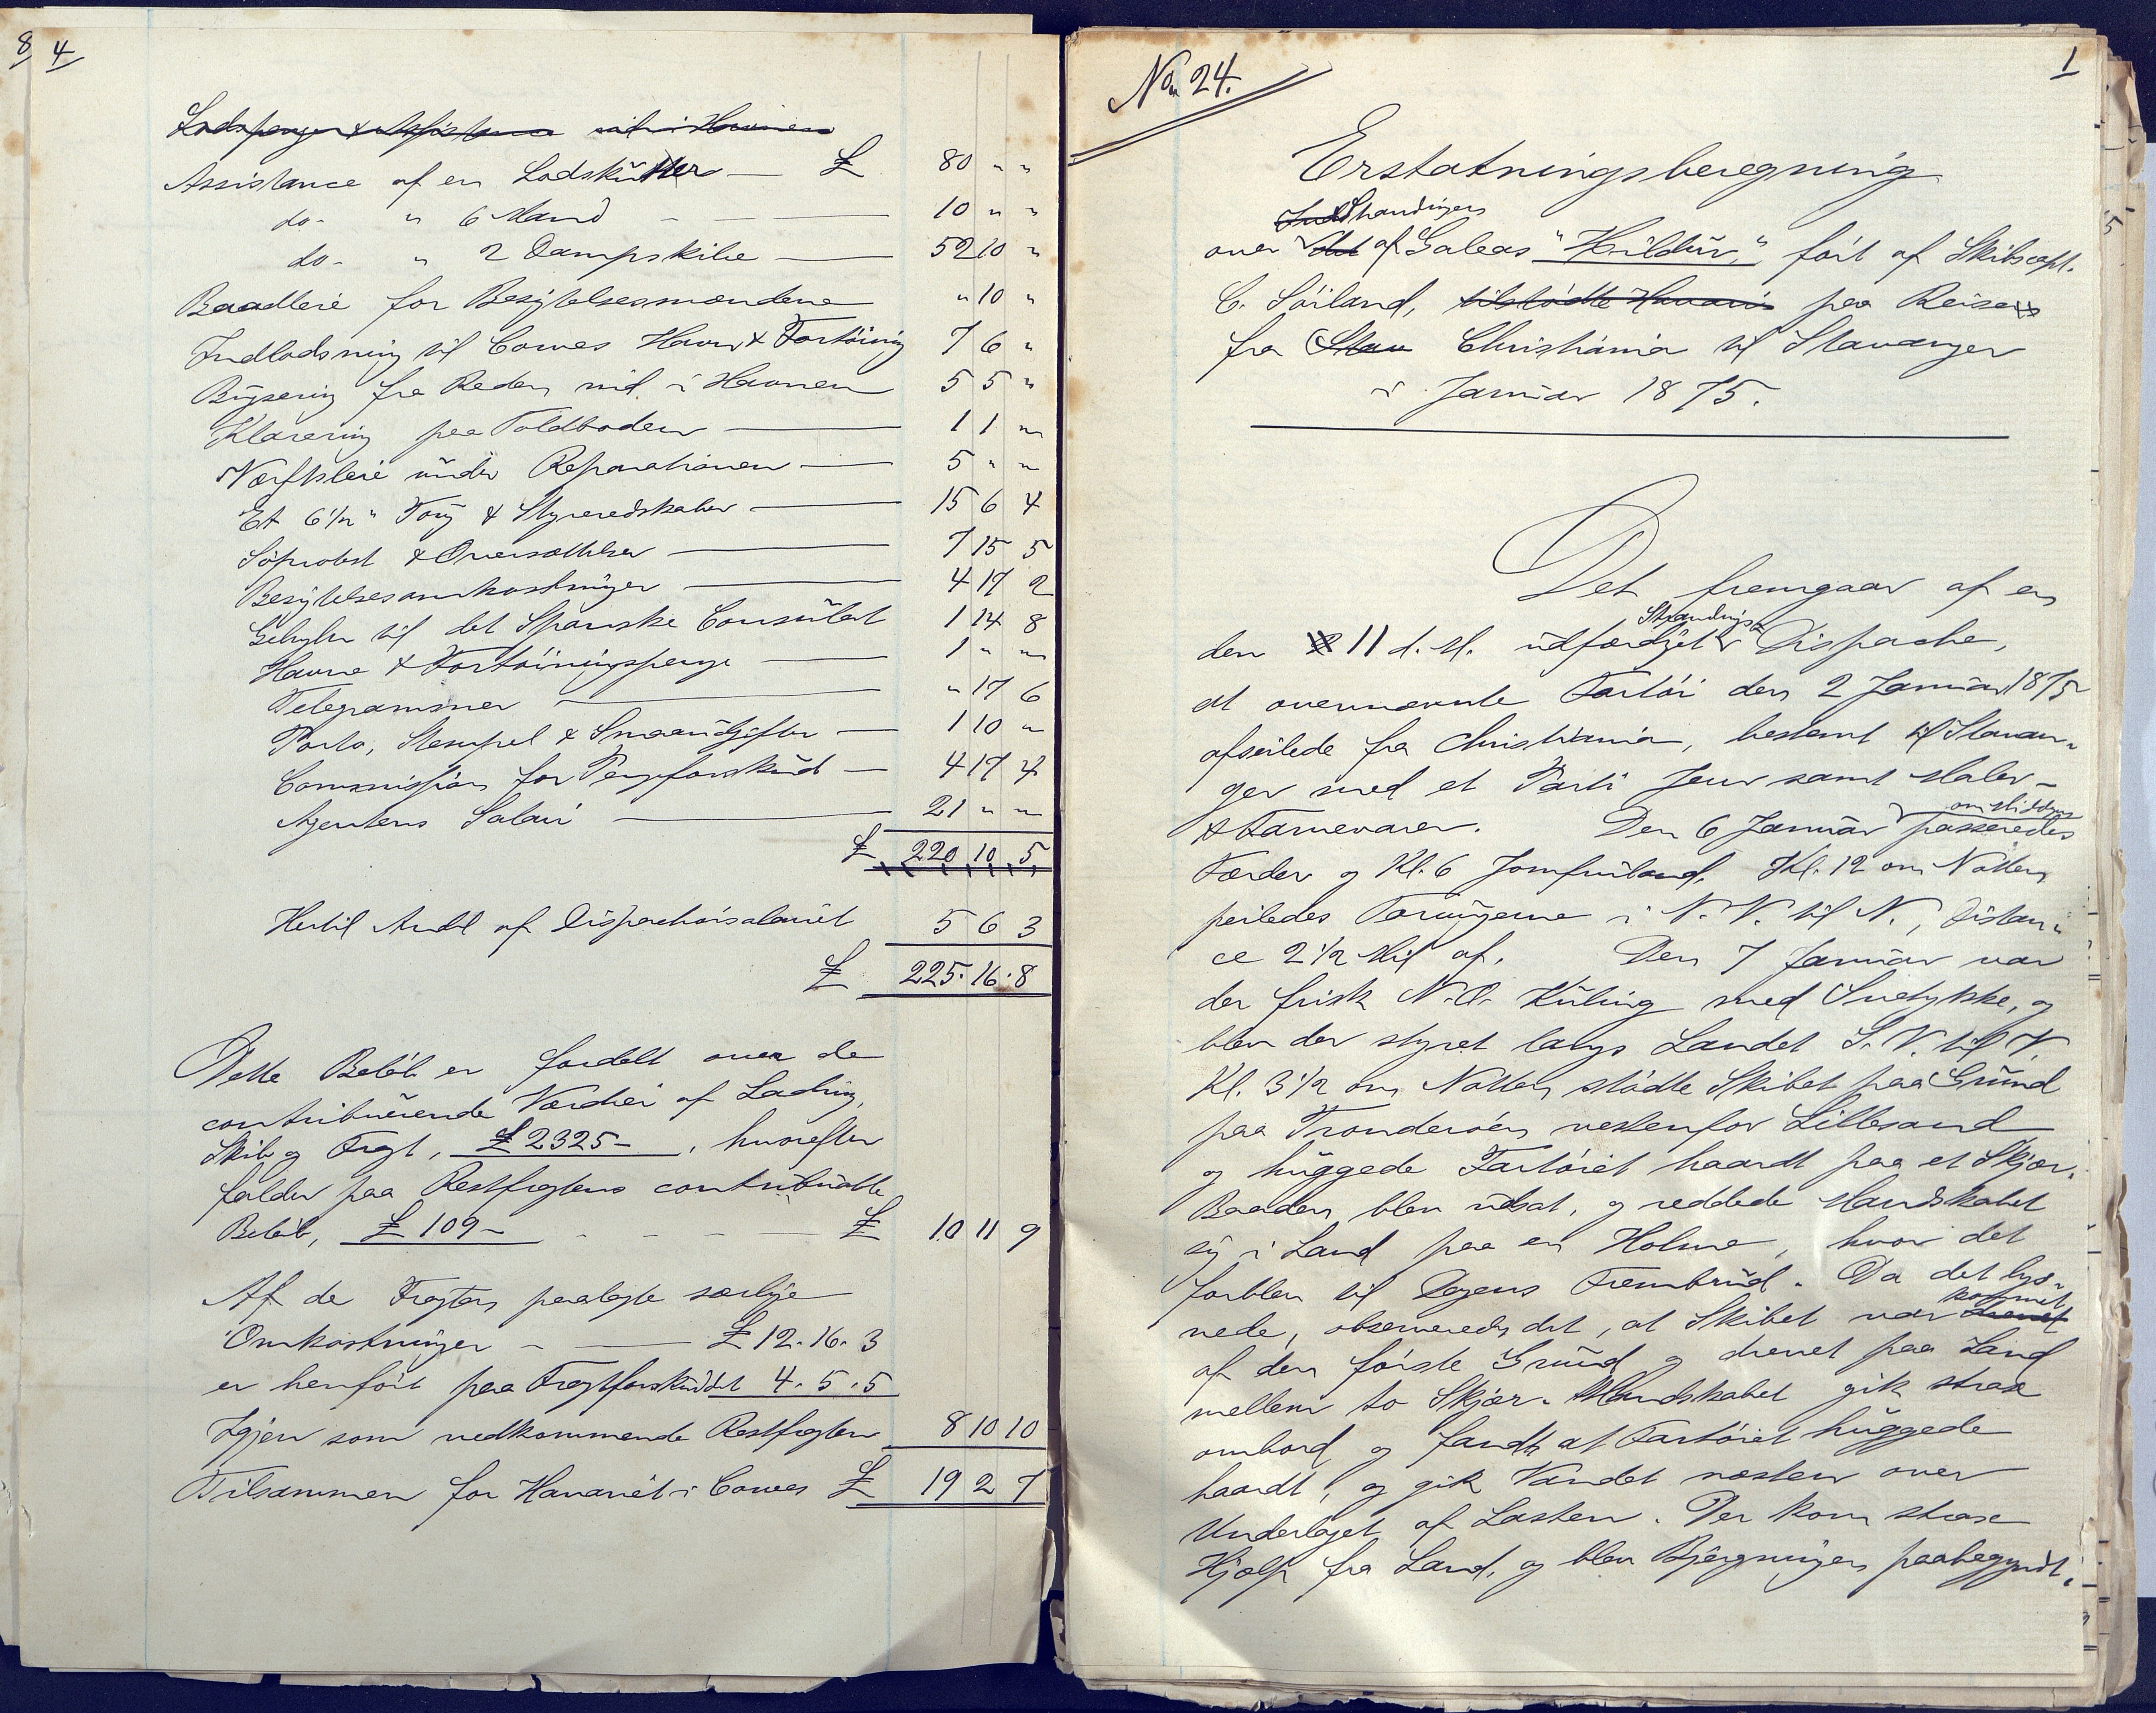 8 4
Lodspenger & Assistance ind i Havnen
Assistance af en Lodskutter — £ 80 " "
do- " 6 Mand — 10 " "
do- " 2 Dampskibe — 52 10 "
Baadleie for Besigtelsesmændene " 10 "
Indlodsning til Cowes Havn & Fortöining 7 6 "
Bugsering fra Reden ind i Havnen 5 5 "
Klarering paa Toldboden — 1 1 "
Værftsleie under Reparationen — 5 " "
Et 6 1/2" Toug & Styreredskaber — 15 6 4
Söprotest & Oversættelser — 7 15 5
Besigtelsesomkostninger — 4 17 2
Gebyhr til det Spanske Consulat 1 14 8
Havne & Fortöiningspenge — 1 " "
Telegrammer — " 17 6
Porto, Stempel & Smaaudgifter — 1 10 "
Commission for Pengeforskud — 4 17 4
Agentens Salair — 21 " "
£ 220 10 5
Hertil Andl af Dispachörsalairet 5 6 3
£ 225. 16. 8
Dette Belöb er fordelt over de
contribuerende Værdier af Ladning,
Skib og Fragt, £ 2325 –, hvorefter
falder paa Restfragtens contribuable
Belöb, £ 109 – — £ 10 11 9
Af de Fragten paalagte særlige
Omkostninger — £ 12. 16. 3
er henfört paa Fragtforskuddet 4. 5. 5
Igjen som vedkommende Restfragten 8 10 10
Tilsammen for Havariet i Cowes £ 19 2 7
No. 24.
1
Erstatningsberegning
Strandingen
over det af Galeas "Hildur", fört af Skibscapt.
C. Söiland, tilstödte Havari paa Reisen
fra Stav Christiania til Stavanger
i Januar 1875.
Det fremgaar af en
Strandings
den 11 d. M. udfærdiget Dispache,
at ovennævnte Fartöi den 2 Januar 1875
afseilede fra Christiania, bestemt til Stavan-
ger med et Parti Jern samt Maler-
& Farvevarer. Den 6 Januar passeredes
om Middagen
Færder og Kl. 6 Jomfruland. Kl. 12 om Natten
peiledes Torungerne i N. V. til N., Distan-
ce 2 1/2 Mil af. Den 7 Januar var
der frisk N. O. Kuling med Snetykke, og
blev der styret langs Landet S. V. til V.
Kl. 3 1/2 om Natten stödte Skibet paa Grund
paa Tronderöen vestenfor Lillesand
og huggede Fartöiet haardt paa et Skjær.
Baaden blev udsat, og reddede Mandskabet
sig i Land paa en Holme, hvor det
forblev til Dagens Frembrud. Da det lys-
kommet
nede, observeredes det, at Skibet var drevet
af den förste Grund og drevet paa Land
mellem to Skjær. Mandskabet gik strax
ombord og fandt at Fartöiet huggede
haardt, og gik Vandet næsten over
Underlaget af Lasten. Der kom strax
Hjælp fra Land, og blev Bjergningen paabegyndt.